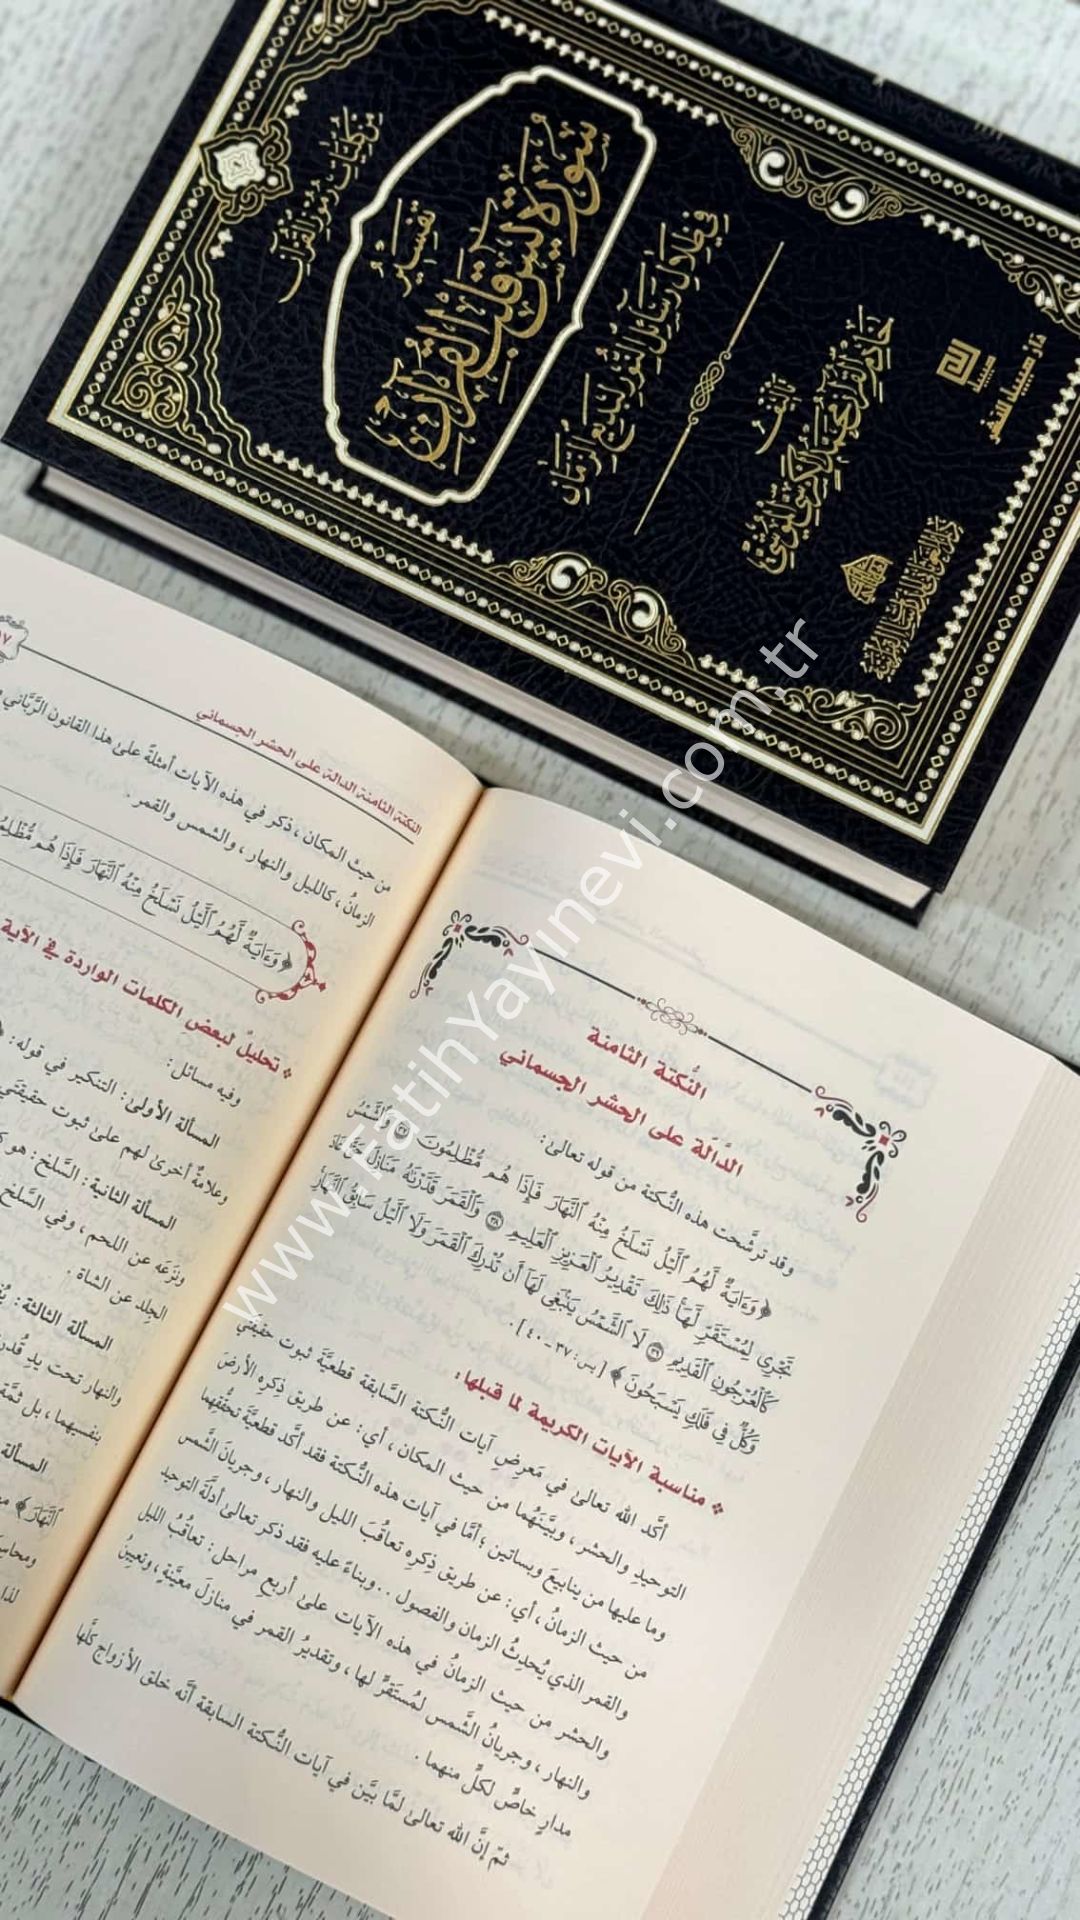 من كليات رموز القرآن
تفسير
سورة يس قلب القرآن
في ظلال رسائل النور لبديع الزمان
تأليف
خادم القرآن محمد الكردي الموشي
سيبيا
دار سيبيا للنشر
النكتة الثامنة الدالة على الحشر الجسماني
من حيث المكان ، ذكر في هذه الآيات أمثلةً علىٰ هذا القانون الرَّبَّاني
الزمانُ ، كالليل والنهار ، والشمس والقمر .
﴿ وَءَايَةٌ لَّهُمُ ٱلَّيْلُ نَسْلَخُ مِنْهُ ٱلنَّهَارَ فَإِذَا هُم
تحليلٌ لبعضِ الكلمات الواردة في الآية
وفيه مسائل :
المسألة الأولىٰ: التنكير في قوله:
وعلامةٌ أخرىٰ لهم علىٰ ثبوت حقيقتَي
المسألة الثانية: السَّلخ: هو
ونزعَه عن اللحم ، وفي السَّلخ
الجِلد عن الشاة .
المسألة الثالثة:
والنهار تحت يدِ
بنفسِهما ، بل ثمَّة
المسألة
ٱلنَّهَارَ ﴾
لذا
النُّكتة الثامنة
الدَّالَة على الحشر الجسماني
وقد ترشَّحت هذه النُّكتة من قوله تعالىٰ:
﴿ وَءَايَةٌ لَّهُمُ ٱلَّيْلُ نَسْلَخُ مِنْهُ ٱلنَّهَارَ فَإِذَا هُم مُّظْلِمُونَ ۝٣٧ وَٱلشَّمْسُ
تَجْرِي لِمُسْتَقَرٍّ لَّهَا ذَٰلِكَ تَقْدِيرُ ٱلْعَزِيزِ ٱلْعَلِيمِ ۝٣٨ وَٱلْقَمَرَ قَدَّرْنَٰهُ مَنَازِلَ حَتَّىٰ عَادَ
كَٱلْعُرْجُونِ ٱلْقَدِيمِ ۝٣٩ لَا ٱلشَّمْسُ يَنۢبَغِي لَهَآ أَن تُدْرِكَ ٱلْقَمَرَ وَلَا ٱلَّيْلُ سَابِقُ ٱلنَّهَارِ
وَكُلٌّ فِي فَلَكٍ يَسْبَحُونَ ﴾ [يس: ٣٧ ـ ٤٠] .
مناسبة الآيات الكريمة لما قبلها:
أكَّد الله تعالىٰ في مَعرِضِ آيات النُّكتة السَّابقة قطعيَّةَ ثبوت حقيقتَي
التوحيدِ والحشر ، وبيَّنَهُما من حيث المكان ، أي: عن طريق ذِكرِه الأرضَ
وما عليها من ينابيعَ وبساتين ؛ أمَّا في آيات هذه النُّكتة فقد أكَّد قطعيَّةَ تحقُّقِهما
من حيث الزمانُ ، أي: عن طريق ذِكرِه تعاقُبَ الليل والنهار ، وجريانَ الشَّمس
والقمر الذي يُحدِثُ الزمان والفصول . . وبناءً عليه فقد ذكر تعالىٰ أدلةَ التوحيد
والحشر من حيث الزمانُ في هذه الآيات علىٰ أربعِ مراحل: تعاقُبُ الليل
والنهار ، وجريانُ الشَّمس لمُستَقَرٍّ لها ، وتقديرُ القمر في منازلَ معيَّنةٍ ، وتعيينُ
مدارٍ خاصٍّ لكلٍّ منهما .
ثمّ إنَّ الله تعالىٰ لمَّا بيَّن في آيات النُّكتة السابقة أنَّه خلق الأزواج كلَّها
www.FatihYayinevi.com.tr